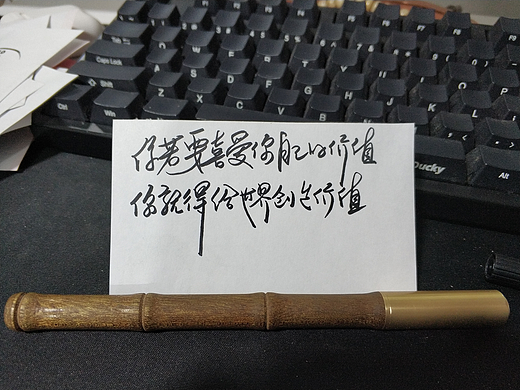 Caps Lock
Shift
Z
X
C
V
B
N
M
Ctrl
Win
Alt
Ducky
你若要喜爱你自己的价值
你就得给世界创造价值